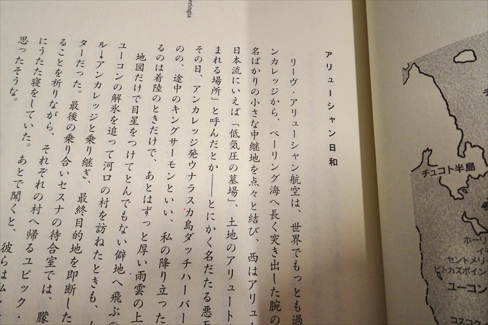 アリューシャン日和
リーヴ・アリューシャン航空は、世界でもっとも過
ンカレッジから、ベーリング海へ長く突き出した腕の
名ばかりの小さな中継地を点々と結び、西はアリュー
日本流にいえば「低気圧の墓場」、土地のアリュート
まれる場所」と呼んだとか――とにかく名だたる悪天
その日、アンカレッジ発ウナラスカ島ダッチハーバー
のの、途中のキングサーモンといい、私の降り立った
るのは着陸のときだけで、あとはずっと厚い雨雲の上
地図だけで目星をつけてとんでもない僻地へ飛ぶの
ユーコンの解氷を追って河口の村を訪ねたときも、
ル→アンカレッジと乗り継ぎ、最終目的地を即断した
ターだった。最後の乗り合いセスナの待合室では、朦
ることを祈りながら、それぞれの村へ帰るユピック・
にうたた寝をしていた。あとで聞くと、彼らは私
思ったそうな。
チュコト半島
ホー
セントメリ
ピトカズポイン
ユーコン
コスコク